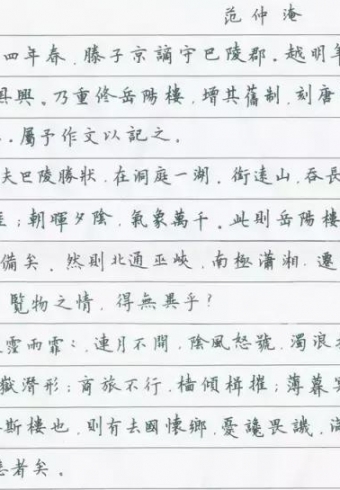 范仲淹
四年春，滕子京謫守巴陵郡。越明年
俱興。乃重修岳陽樓，增其舊制，刻唐
。屬予作文以記之。
夫巴陵勝狀，在洞庭一湖。銜遠山，吞長
；朝暉夕陰，氣象萬千。此則岳陽樓
備矣。然則北通巫峽，南極瀟湘，遷
覽物之情，得無異乎？
霪雨霏霏，連月不開，陰風怒號，濁浪
嶽潛形；商旅不行，檣傾楫摧；薄暮冥
斯樓也，則有去國懷鄉，憂讒畏譏，滿
悲者矣。